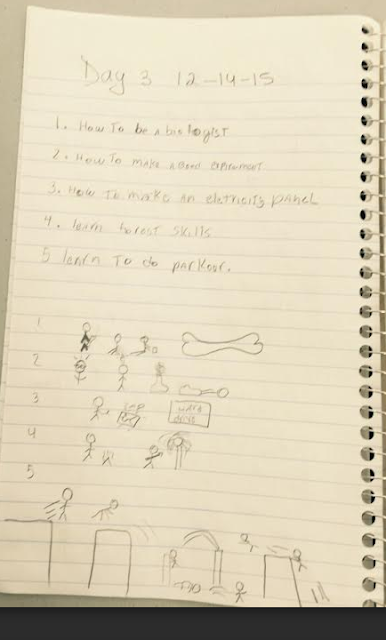 Day 3 12-14-15
1. How To be a biologist
2. How To make a good experement
3. How to make an eletricity panel
4. learn forest skills
5 learn To do parkour.
1
2
3
hard drive
4
5